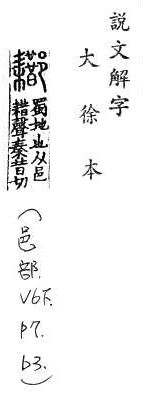 說文解字
大徐本
蜀地也从邑
耤聲秦昔切
(邑部. V6下. P7. b3.)